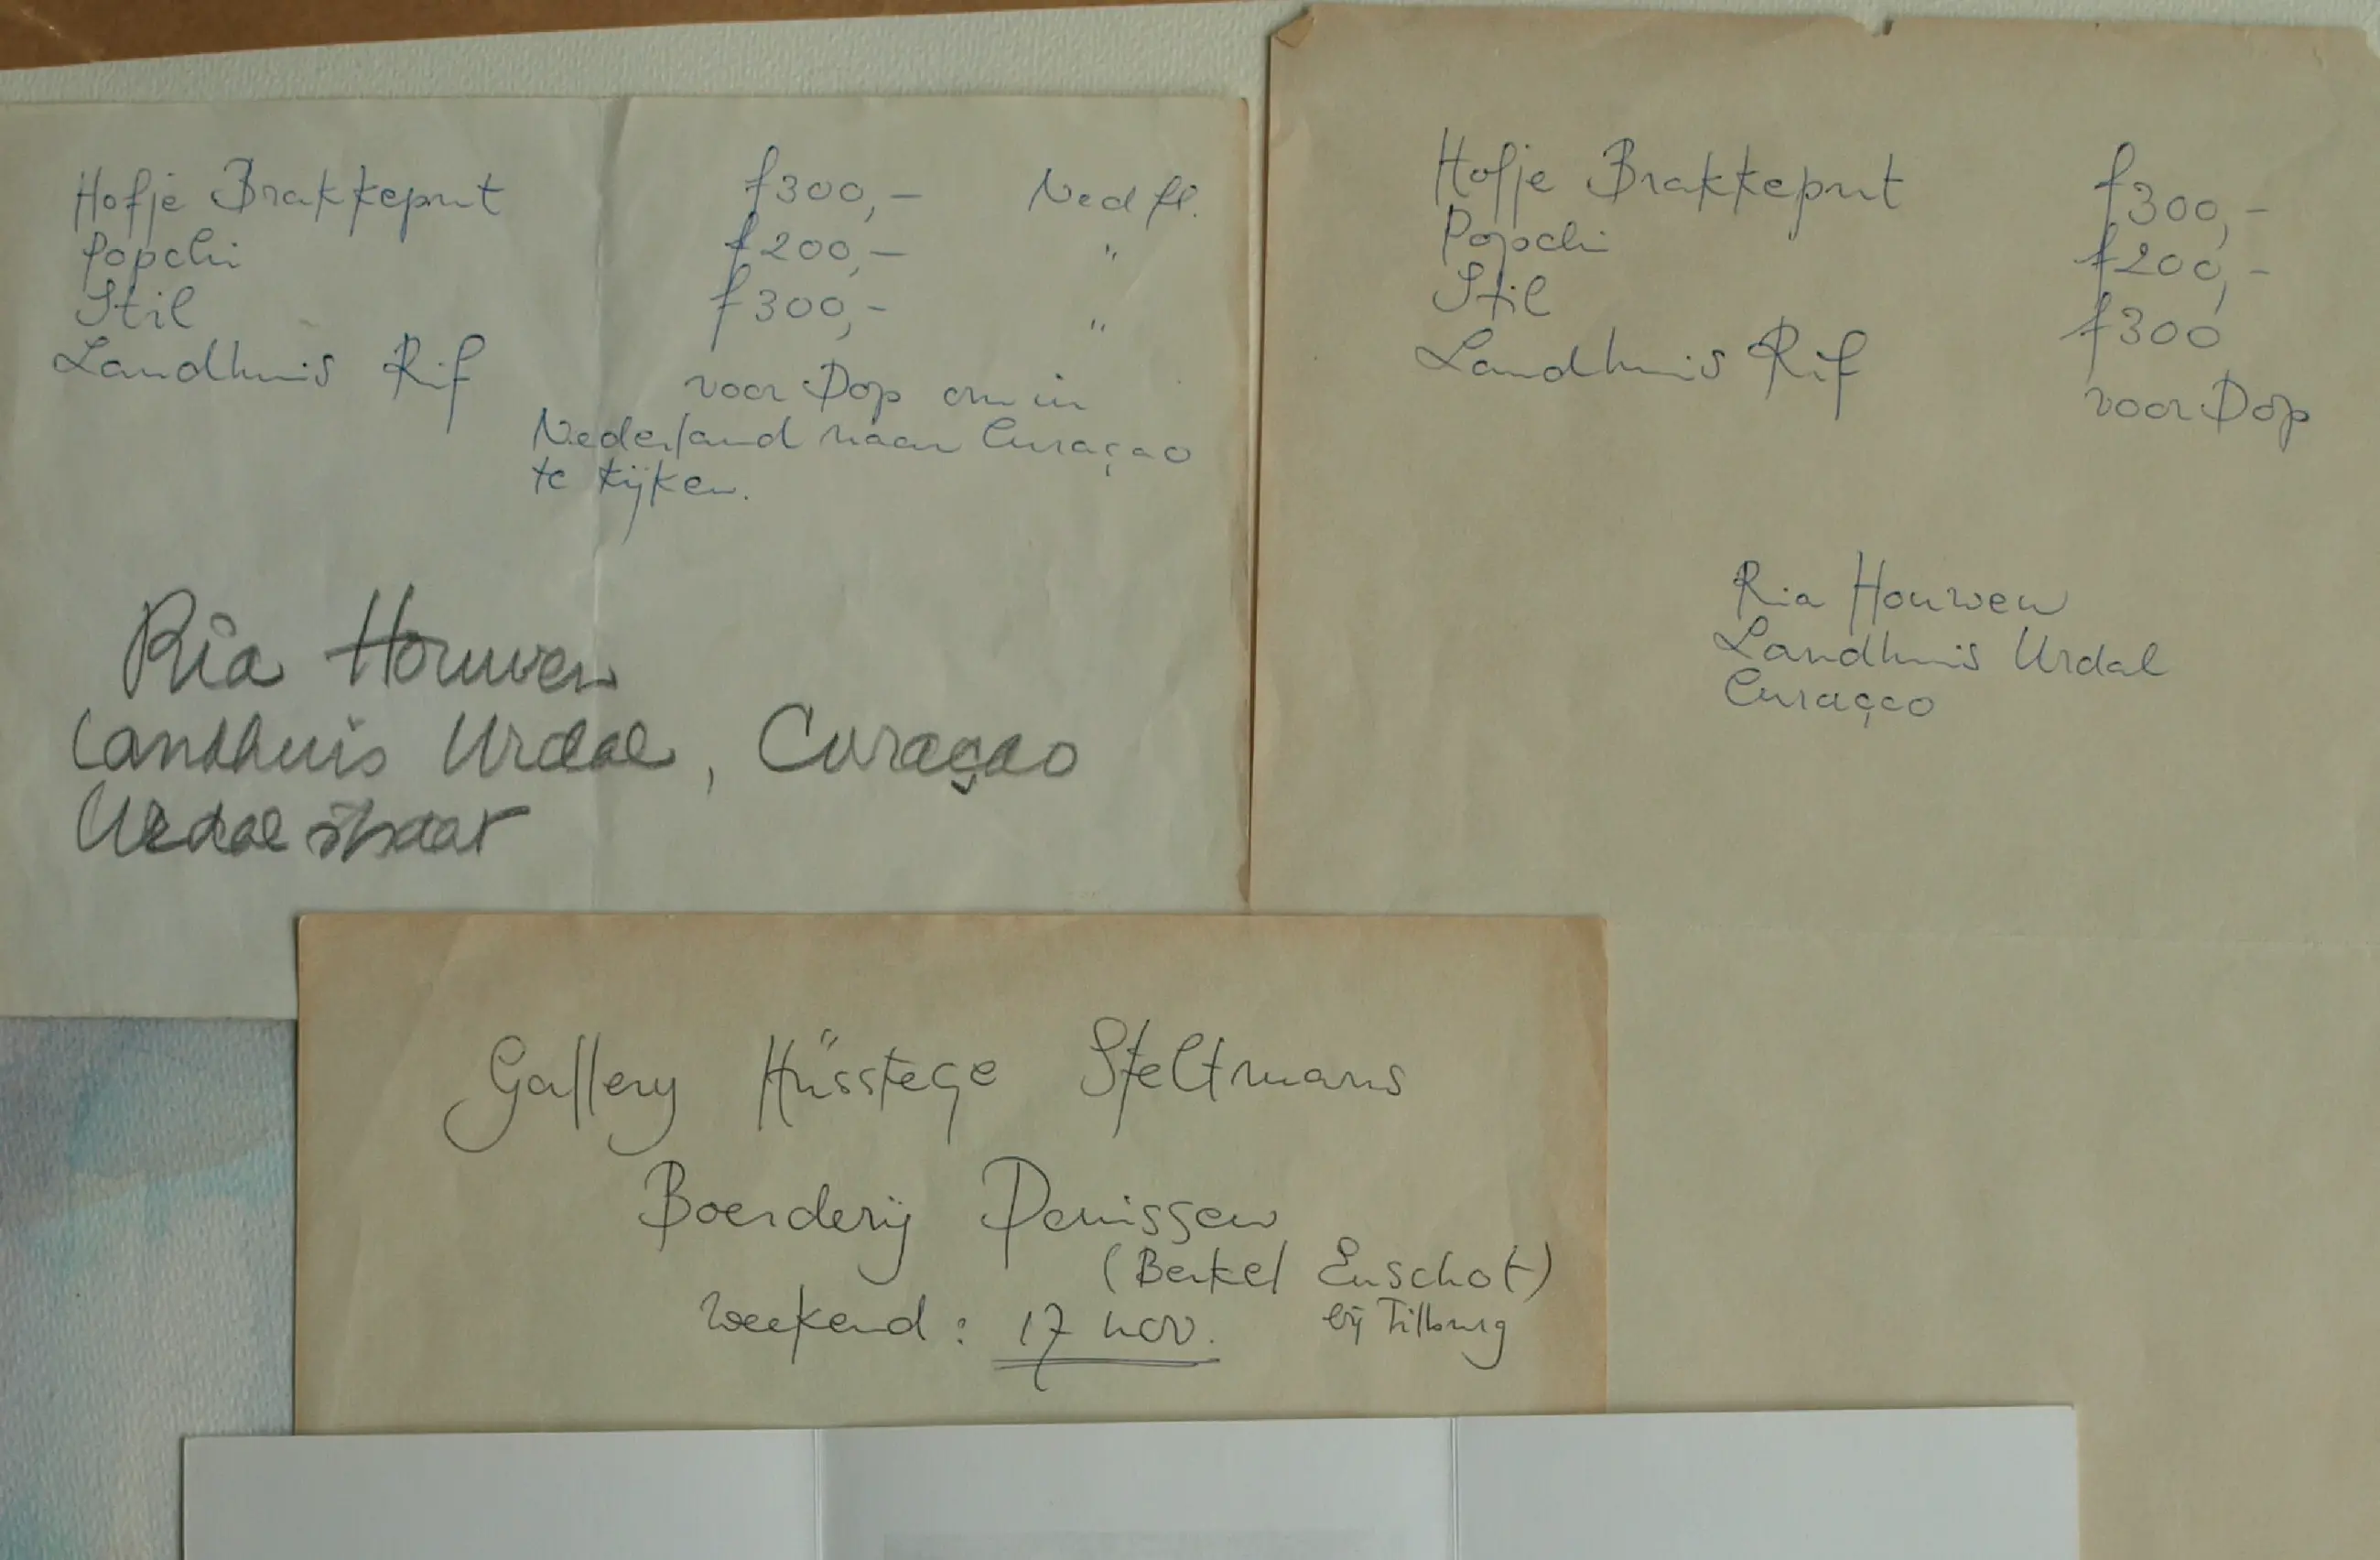 Hofje Brakkeput f300,- Ned fl.
Popchi f200,- "
Stil f300,- "
Landhuis Rif voor Dop om in
Nederland naar Curaçao
te kijken.
Ria Houwen
Landhuis Urdal, Curaçao
Urdalstraat
Hofje Brakkeput f300,-
Popchi f200,-
Stil f300
Landhuis Rif voor Dop
Ria Houwen
Landhuis Urdal
Curaçao
Gallery Hüsstege Steltmans
Boerderij Denissen
(Berkel Enschot)
Weekend: 17 nov. bij Tilburg